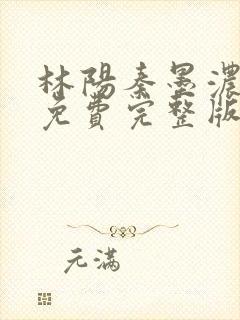 林陽秦墨濃
免費完整版
元滿